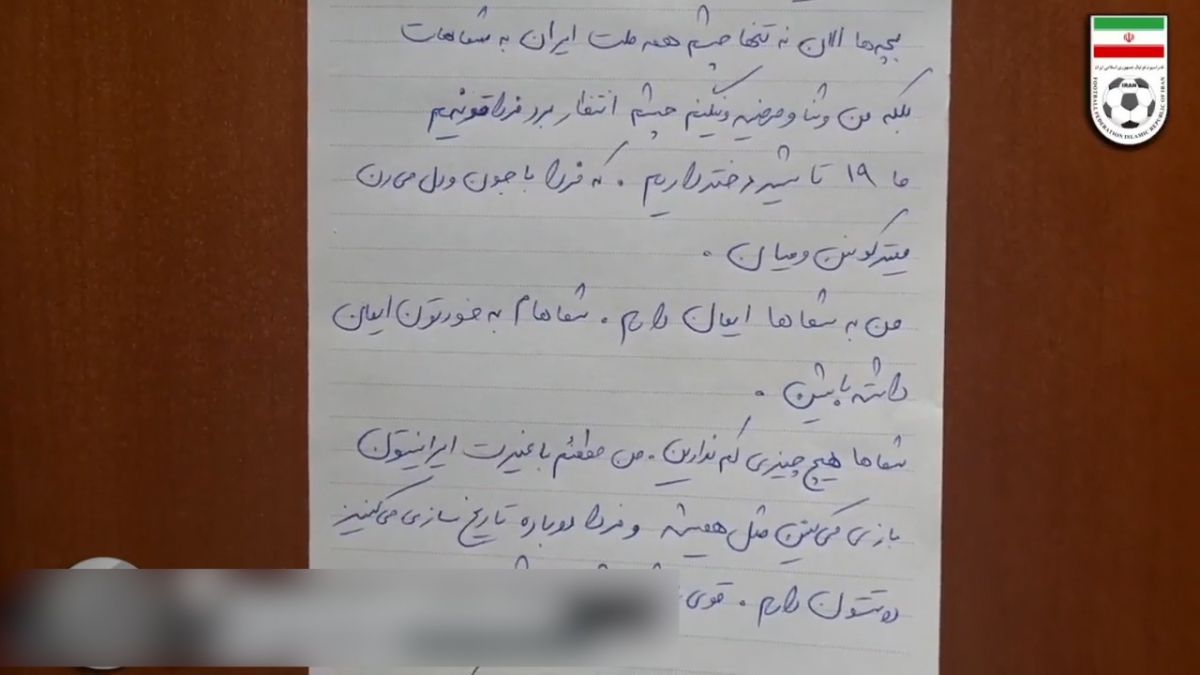 بچه‌ها الان نه تنها چشم همه ملت ایران به شماهاست
بلکه من و ثنا و مرضیه و نگینم چشم انتظار برد فردا قونیم
ما ۱۹ تا شیر دختر داریم . که فردا با جون و دل می‌رن
میترکونن و میان .
من به شماها ایمان دارم . شماهام به خودتون ایمان
داشته باشین .
شماها هیچ چیزی کم ندارین . من مطمئنم با غیرت ایرانیتون
بازی می‌کنین مثل همیشه و فردا دوباره تاریخ سازی می‌کنید
دوستتون دارم . قوی
فدراسیون فوتبال جمهوری اسلامی ایران
IRAN
FOOTBALL FEDERATION ISLAMIC REPUBLIC OF IRAN